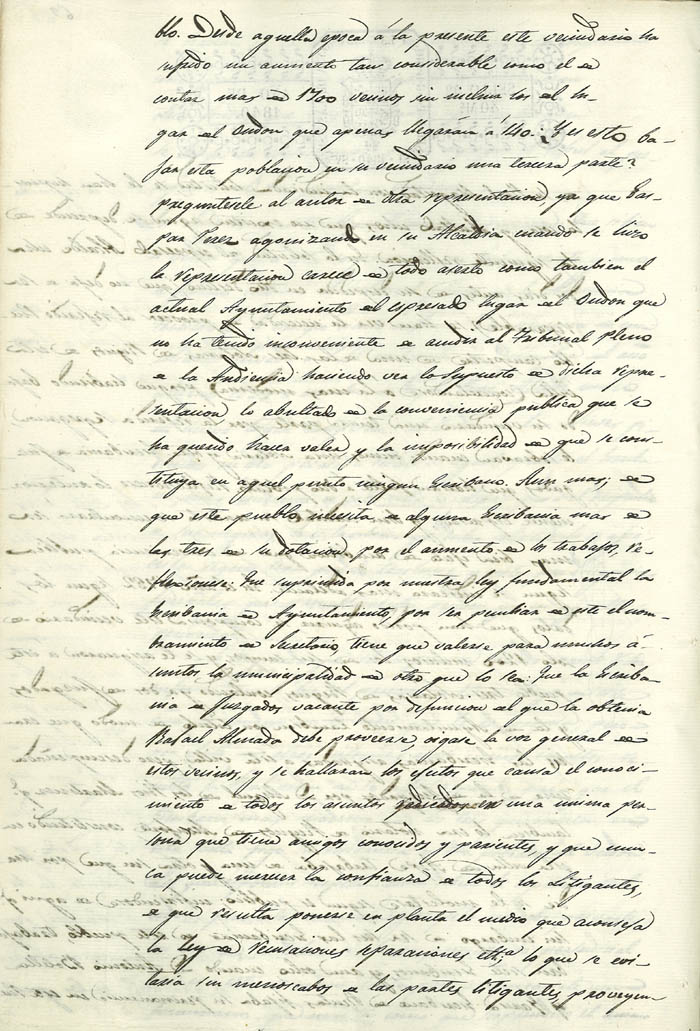 blo. Desde aquella epoca á la presente este vecindario ha
sufrido un aumento tan considerable como el de
contar mas de 1700 vecinos sin incluir los del lu-
gar del Ondon que apenas llegarán á 140: Y es esto ba-
jar esta poblacion en su vecindario una tercera parte?
preguntesele al autor de otra representacion, ya que Gas-
par Perez agonizando en su Alcaldia cuando se hizo
la representacion carece de todo aserto como tambien el
actual Ayuntamiento del espresado lugar del Ondon que
no ha tenido inconveniente de acudir al Tribunal Pleno
de la Audiencia haciendo ver lo supuesto de dicha repre-
sentacion lo abultado de la conveniencia publica que se
ha querido hacer valer y la imposibilidad de que se cons-
tituya en aquel punto ningun Escribano. Aun mas; de
que este pueblo necesita de alguna Escribania mas de
las tres de su dotacion, por el aumento de los trabajos, re-
flexionese: Que suprimida por nuestra ley fundamental la
Escribania de Ayuntamiento, por ser de este el nom-
bramiento de Secretario, tiene que valerse para muchos a-
suntos la municipalidad de otro que lo sea: Que la Escriba-
nia de Juzgados vacante por defuncion del que la obtenia
Rafael Almada debe proveerse, oigase la voz general de
estos vecinos, y se hallarán los efectos que causa el conoci-
miento de todos los asuntos radicados en una misma per-
sona que tiene amigos conocidos y parientes, y que nun-
ca puede merecer la confianza de todos los litigantes,
de que resulta ponerse en planta el medio que aconseja
la ley de recusaciones separaciones etc.ª lo que se evi-
taria sin menoscabos de las partes litigantes, proveyen-